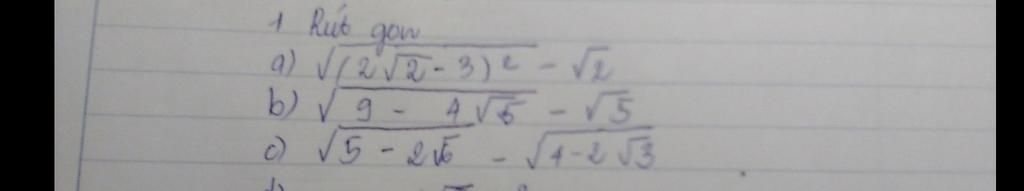 1 Rút gọn
a) √(2√2 - 3)² - √2
b) √9 - 4√5 - √5
c) √5 - 2√6 - √4 - 2√3